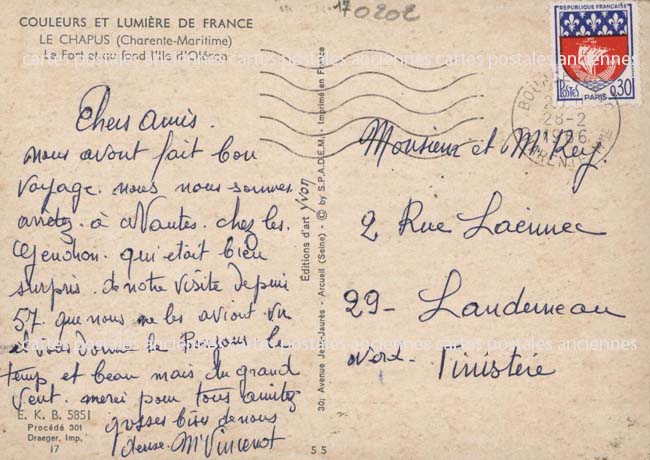 COULEURS ET LUMIÈRE DE FRANCE
LE CHAPUS (Charente-Maritime)
Le Fort et au fond l'Ile d'Oléron
17 0202
REPUBLIQUE FRANÇAISE
POSTES PARIS 0,30
28-2
1966
cartes postales anciennes cartes postales anciennes cartes postales anciennes
Chers amis.
nous avont fait bon
voyage. nous nous sommes
arretez. à Nantes. chez les.
Gendron. qui était bien
surpris. de notre visite depuis
57. que nous ne les aviont vu
et vous donne le Bonjour le
temp et beau mais du grand
vent. merci pour tous amitiez
grosses bises de nous
Mme Vincenot
E. K. B. 5851
Procédé 301
Draeger, Imp.
17
Editions d'art yvon
30, Avenue Jean-Jaurès - Arcueil (Seine) - © by S.P.A.D.E.M. - Imprimé en France
55
Monsieur et Mme Rey.
2 Rue Laënnec
29- Landerneau
Nord- Finistère
cartes postales anciennes cartes postales anciennes cartes postales anciennes